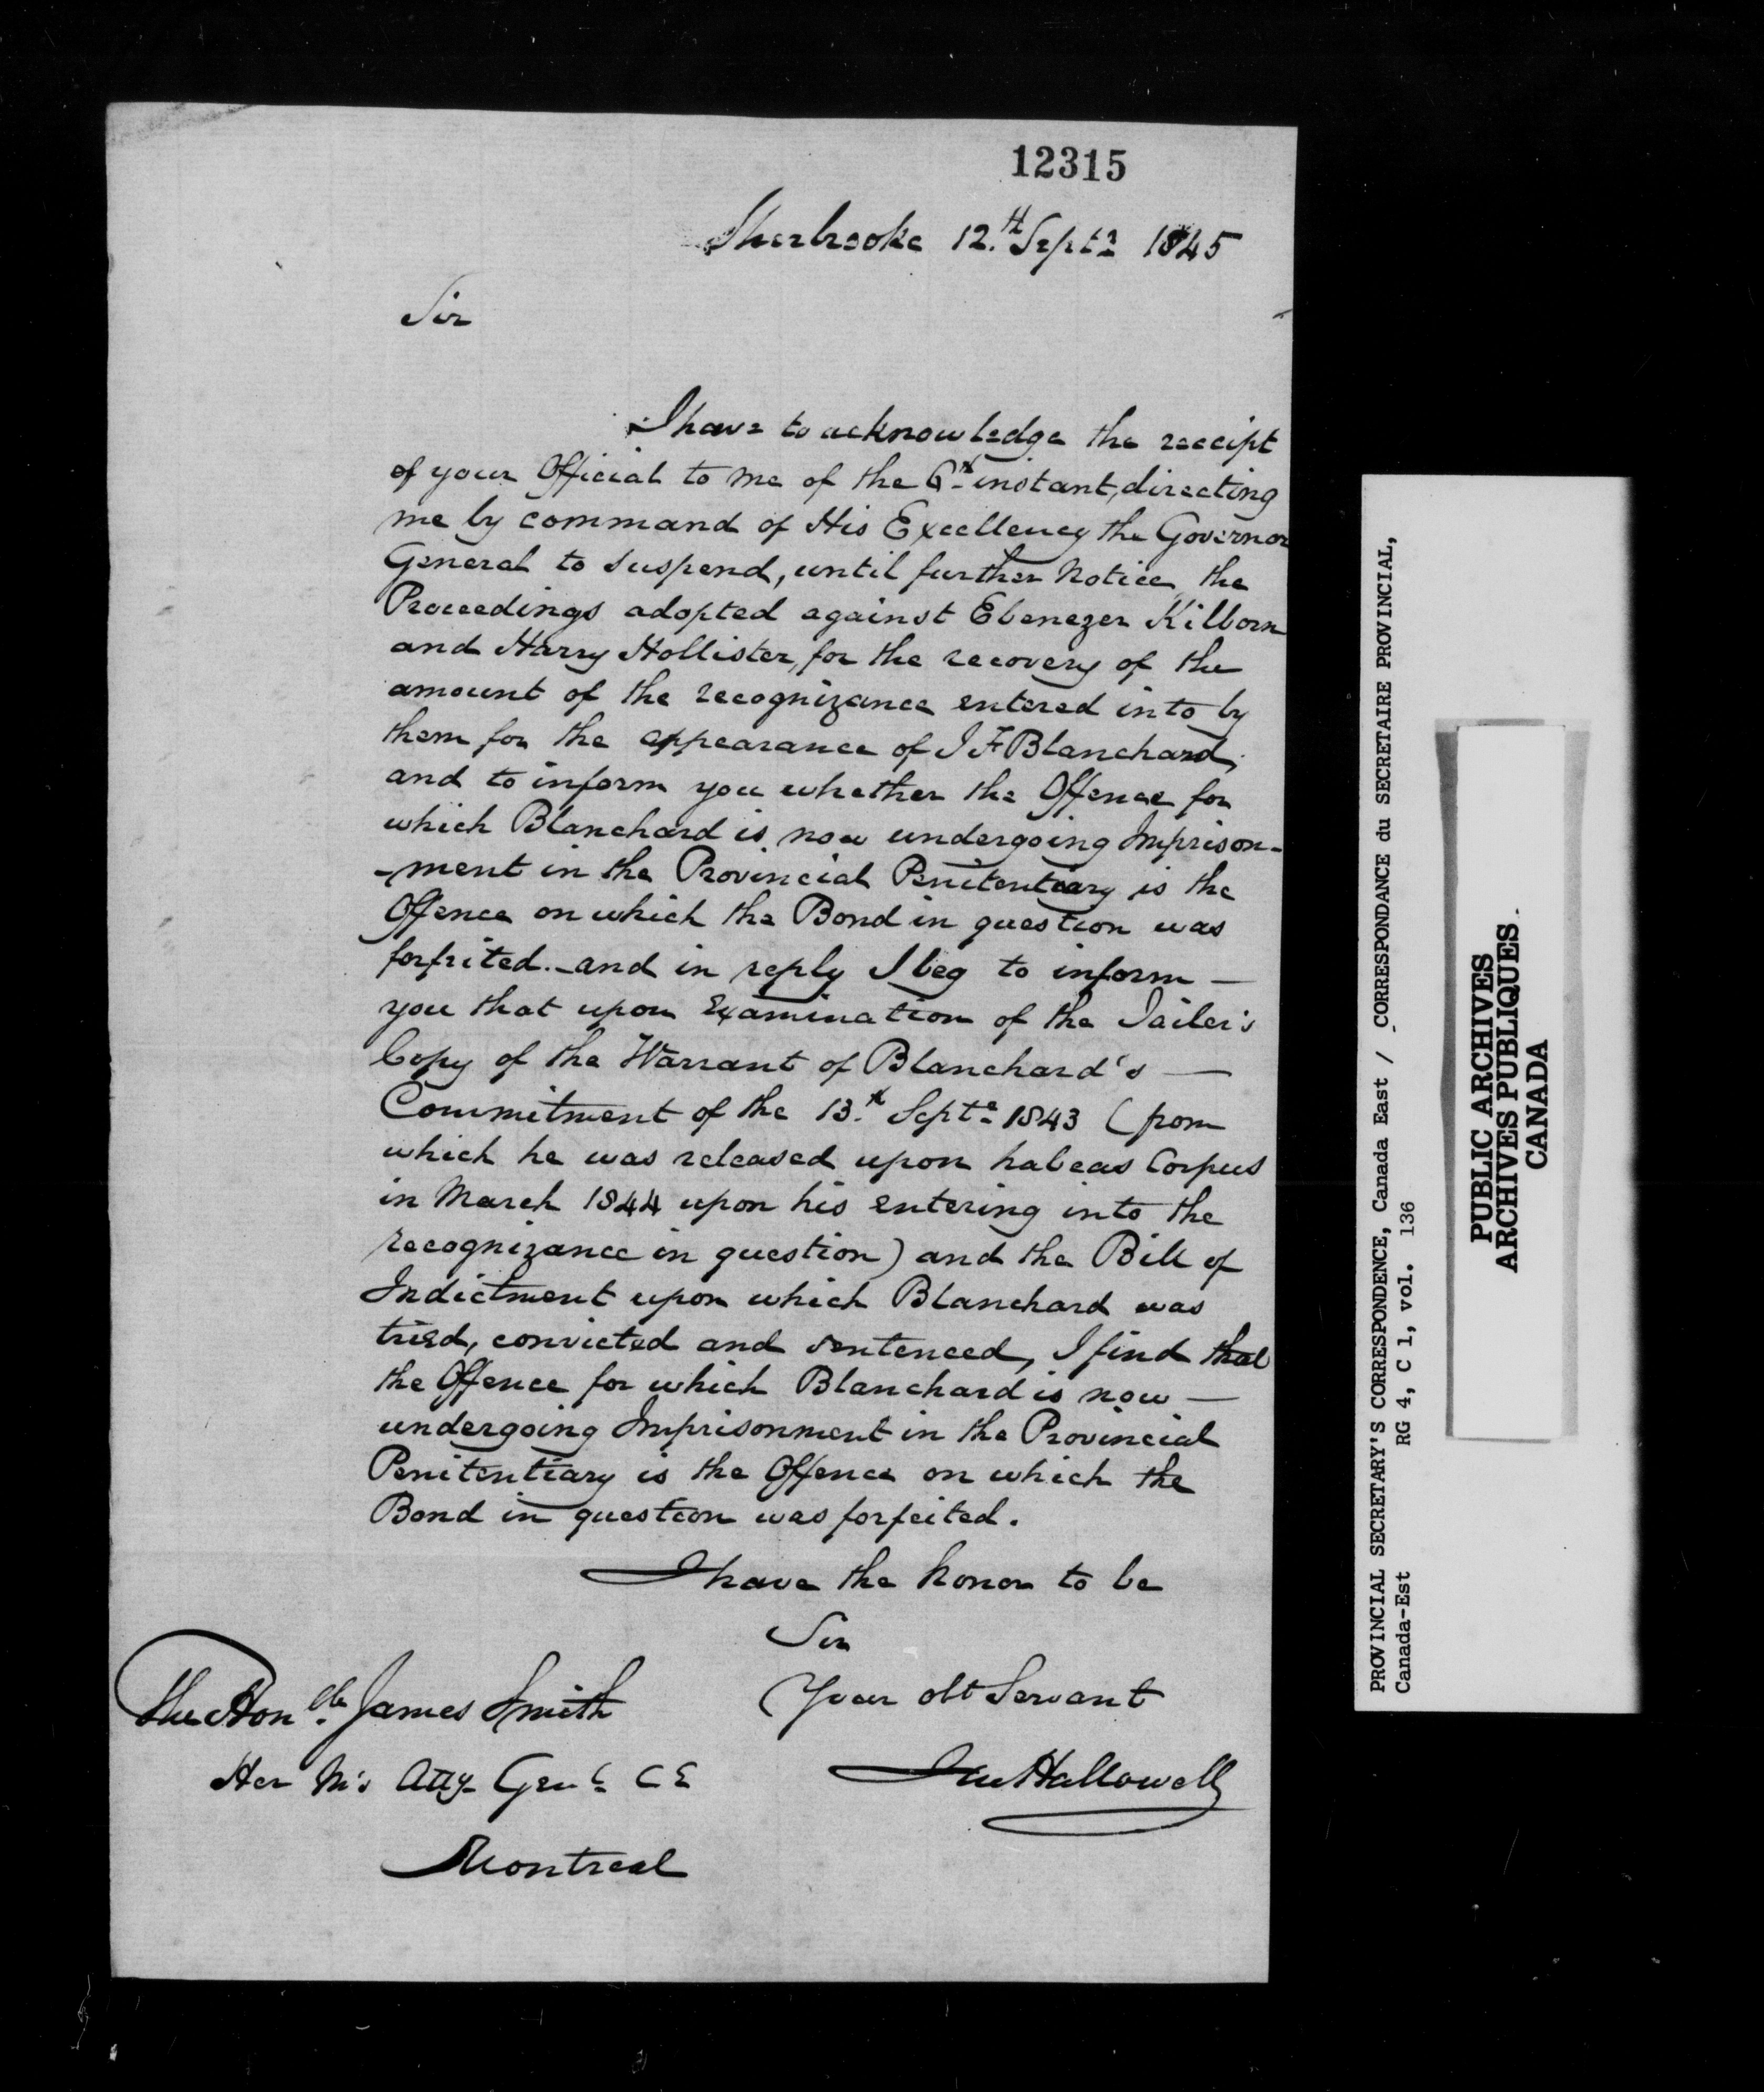 12315
Sherbrooke 12.th Septr 1845
Sir
I have to acknowledge the receipt
of your Official to me of the 6th instant, directing
me by command of His Excellency the Governor
General to suspend, until further Notice, the
Proceedings adopted against Ebenezer Kilborn
and Harry Hollister, for the recovery of the
amount of the recognizance entered into by
them for the appearance of J F Blanchard,
and to inform you whether the Offence for
which Blanchard is now undergoing Imprison-
-ment in the Provincial Penitentiary is the
Offence on which the Bond in question was
forfeited. and in reply I beg to inform —
you that upon Examination of the Jailer's
Copy of the Warrant of Blanchard's —
Commitment of the 13.th Septr 1843 (from
which he was released upon habeas Corpus
in March 1844 upon his entering into the
recognizance in question) and the Bill of
Indictment upon which Blanchard was
tried, convicted and sentenced, I find that
the Offence for which Blanchard is now —
undergoing Imprisonment in the Provincial
Penitentiary is the Offence on which the
Bond in question was forfeited.
I have the honor to be
Sir
Your obt Servant
Hallowell
The Honble. James Smith
Her M's Atty Genl C E
Montreal
PROVINCIAL SECRETARY'S CORRESPONDENCE, Canada East / CORRESPONDANCE du SECRETAIRE PROVINCIAL,
Canada-Est RG 4, C 1, vol. 136
PUBLIC ARCHIVES
ARCHIVES PUBLIQUES
CANADA